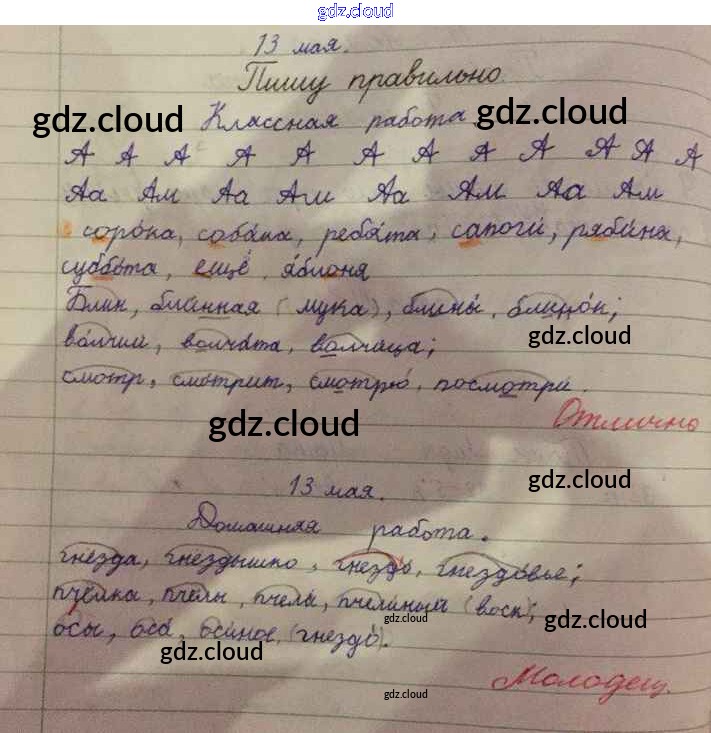 gdz.cloud
13 мая.
Пишу правильно
gdz.cloud Классная работа gdz.cloud
А А А А А А А А А А А А
Аа Ам Аа Ам Аа Ам Аа Ам
соро́ка, соба́ка, ребя́та, сапоги́, ряби́на,
суббо́та, ещё, я́блоня
Блин, бли́нная (мука), блины́, блино́к;
gdz.cloud
во́лчий, волча́та, волчи́ца;
смотр, смо́трит, смотрю́, посмотри́.
gdz.cloud
Отлично
gdz.cloud
13 мая.
Домашняя работа.
гнёзда, гнёздышко, гнездо́, гнездо́вье;
пчёлка, пчёлы, пчела́, пчели́ный (воск);
gdz.cloud
gdz.cloud
о́сы, оса́, оси́ное, (гнездо́).
gdz.cloud
Молодец.
gdz.cloud